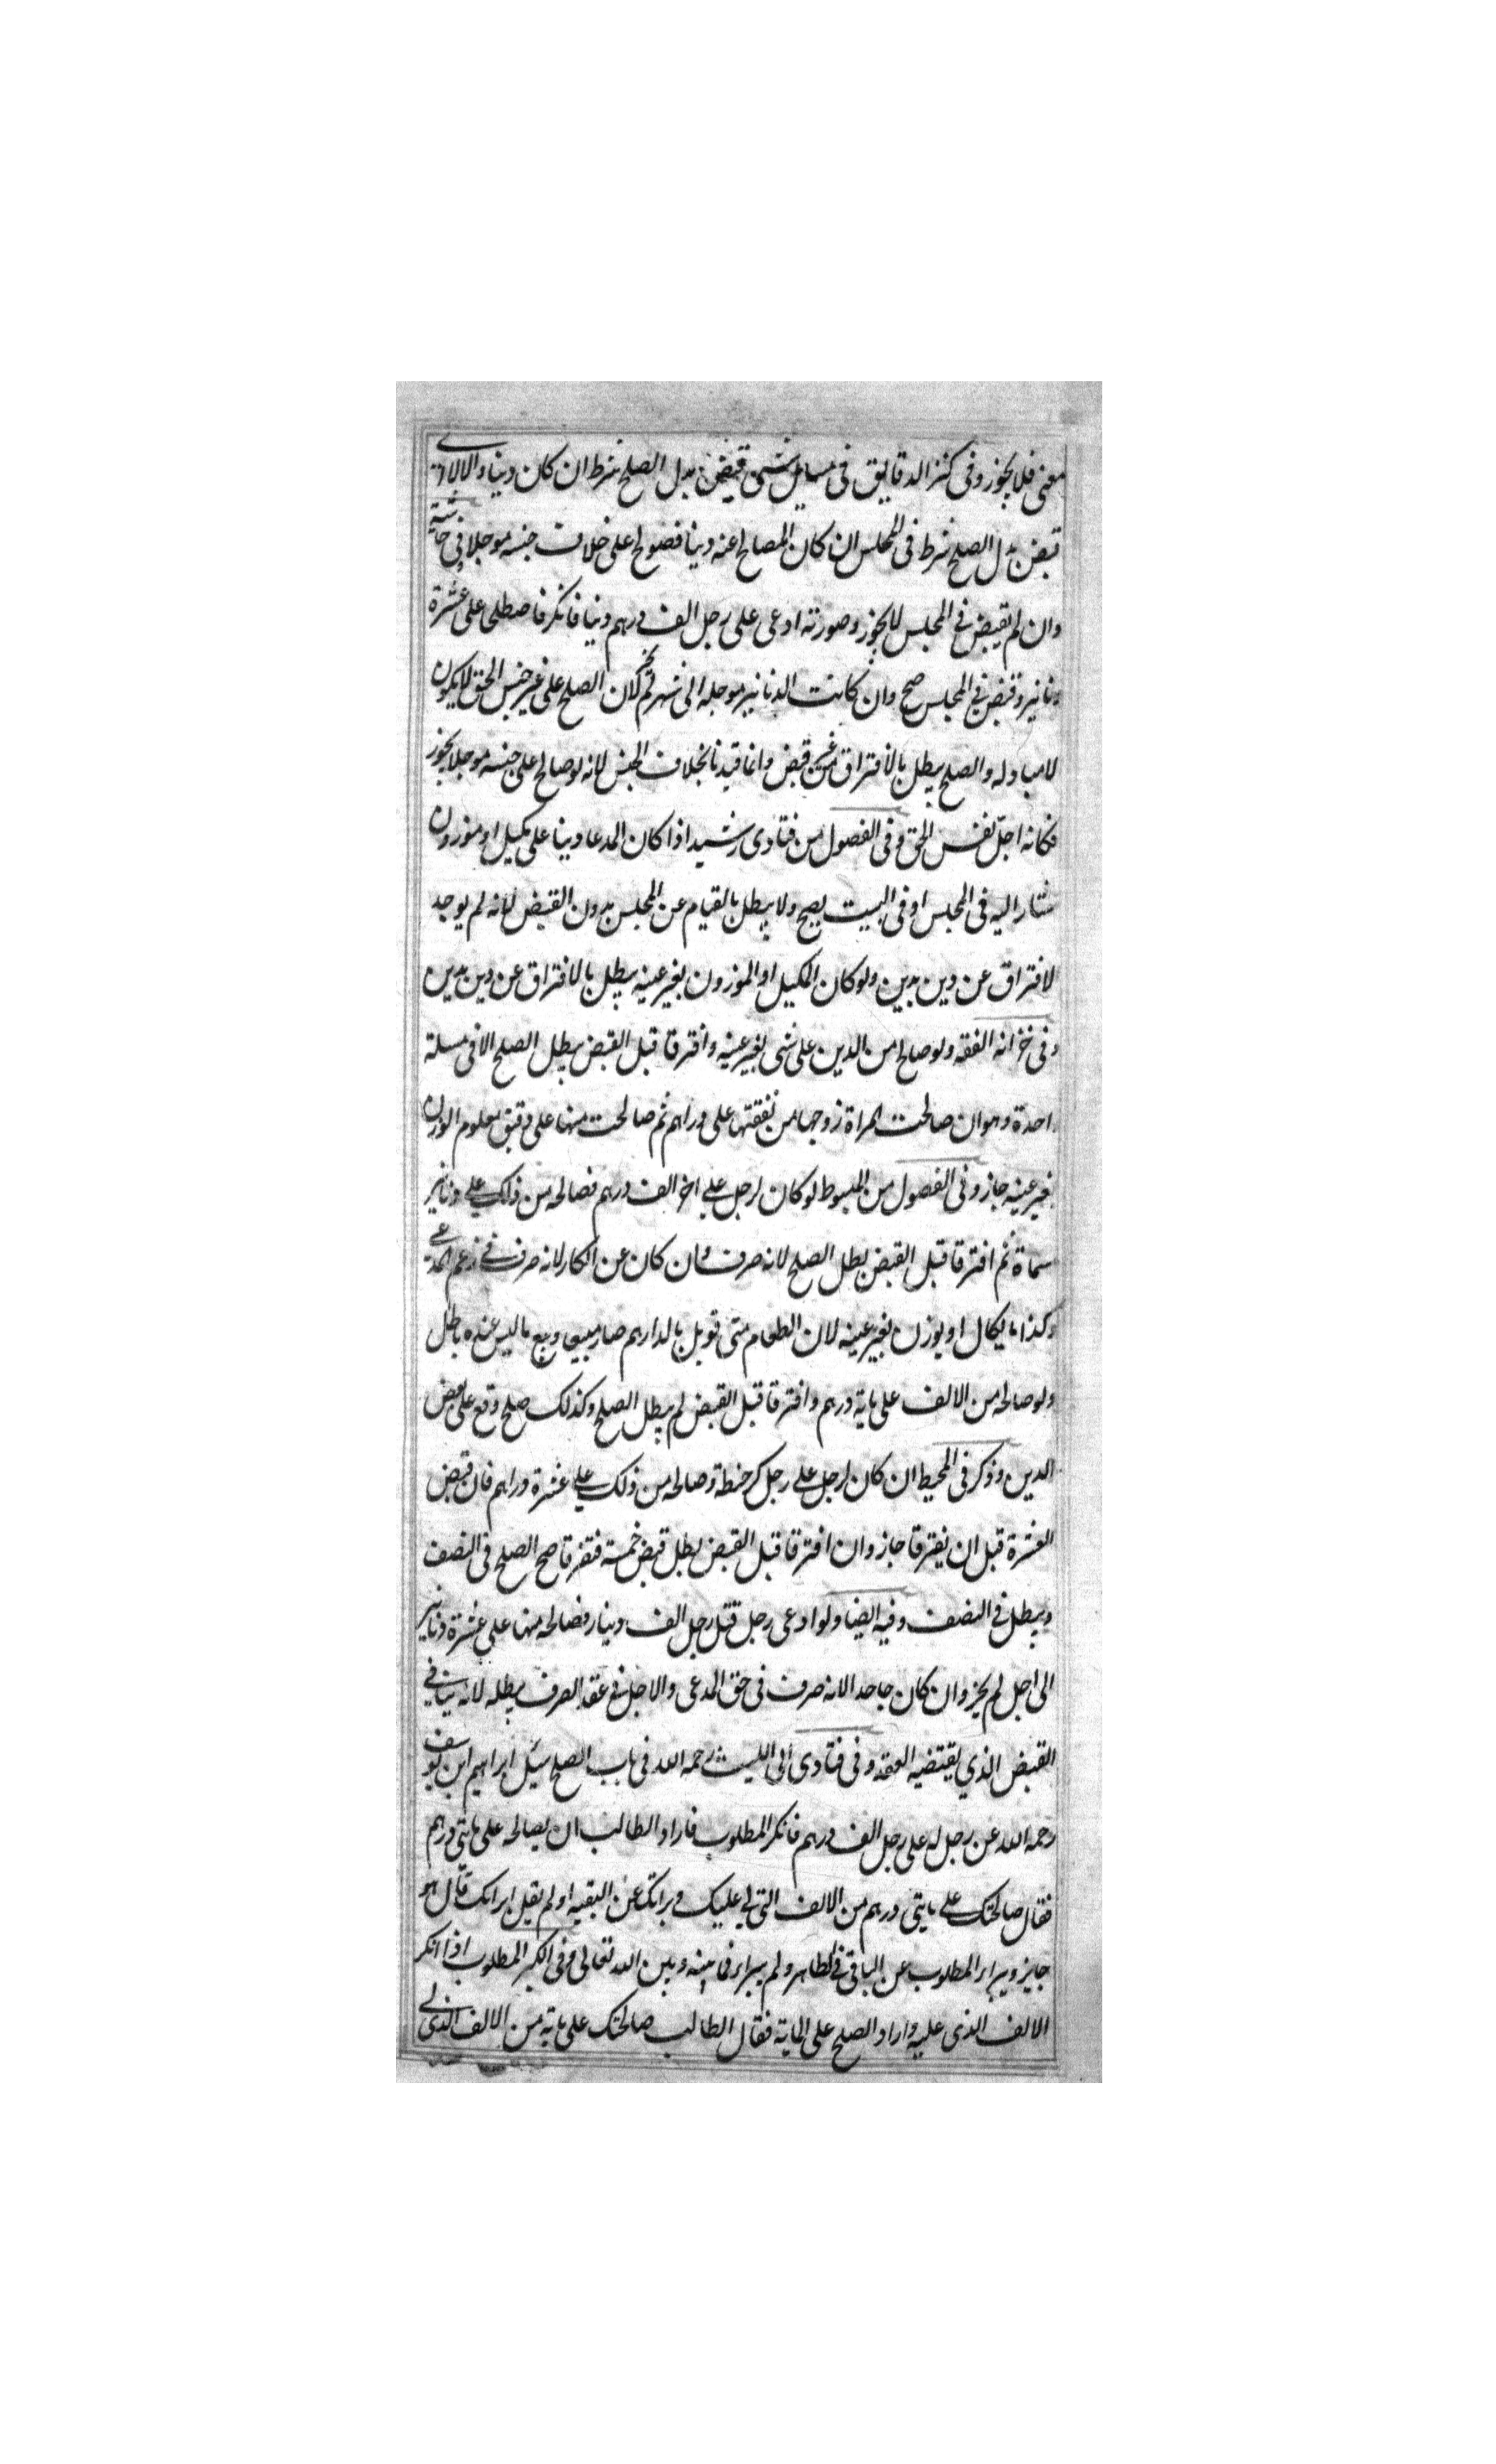 معنى فلا يجوز وفى كنز الدقايق فى مسايل شتى قبض بدل الصلح شرط ان كان دينا والا لا اى
قبض بدل الصلح شرط فى المجلس ان كان المصالح عنه دينا فصولح على خلاف جنسه موجلا فى حاشية
وان لم يقبض فى المجلس لا يجوز وصورته ادعى على رجل الف درهم دينا فانكر فاصطلحا على عشرة
دنانير وقبض فى المجلس صح وان كانت الدنانير موجله الى شهر لم يجز لان الصلح على غير جنس الحق لا يكون
لا مبادله والصلح يبطل بالافتراق من غير قبض وانما قيدنا بخلاف الجنس لانه لو صالح على جنسه موجلا يجوز
فكانه اجل نفس الحق وفى الفصول من فتاوى رشيد اذا كان المدعا دينا على مكيل او موزون
مشار اليه فى المجلس او فى البيت يصح ولا يبطل بالقيام عن المجلس بدون القبض لانه لم يوجد
لافتراق عن دين بدين ولو كان المكيل او الموزون بغير عينه يبطل بالافتراق عن دين بدين
وفى خزانه الفقه ولو صالح من الدين على شى بغير عينه وافترقا قبل القبض يبطل الصلح الا فى مسلة
احدة وهو ان صالحت امراة زوجها من نفقتها على دراهم ثم صالحت منها على دقيق معلوم الوزن
بغير عينه جاز وفى الفصول من المبسوط لو كان لرجل على اخر الف درهم فصالحه من ذلك على دنانير
سماة ثم افترقا قبل القبض بطل الصلح لانه صرف وان كان عن انكار لانه صرف فى زعم المدعى
وكذا ما يكال او يوزن بغير عينه لان الطعام متى قوبل بالدارهم صار مبيعا وبيع ما ليس عنده باطل
ولو صالحه من الالف على ماية درهم وافترقا قبل القبض لم يبطل الصلح وكذلك صلح وقع على بعض
الدين وذكر فى المحيط ان كان لرجل على رجل كر حنطة وصالحه من ذلك على عشرة دراهم فان قبض
العشرة قبل ان يفترقا جاز وان افترقا قبل القبض بطل قبض خمسة فتفرقا صح الصلح فى النصف
ويبطل فى النصف وفيه ايضا ولو ادعى رجل قبل رجل الف دينار فصالحه منها على عشرة دنانير
الى اجل لم يجز وان كان جاحدا لانه صرف فى حق المدعى والاجل فى عقد الصرف يبطله لانه ينافى
القبض الذي يقتضيه العقد وفى فتاوى ابى الليث رحمه الله فى باب الصلح سئل ابراهيم ابن يوسف
رحمه الله عن رجل له على رجل الف درهم فانكر المطلوب فاراد الطالب ان يصالحه على مايتى درهم
فقال صالحتك على مايتى درهم من الالف التى لى عليك وبراتك عن البقيه او لم يقل ابراتك قال هو
جايز ويبرا المطلوب عن الباقى فى الظاهر ولم يبرا فيما بينه وبين الله تعالى وفى الكبر المطلوب اذا انكر
الالف الذى عليه واراد الصلح على الماية فقال الطالب صالحتك على ماية من الالف الذى لى